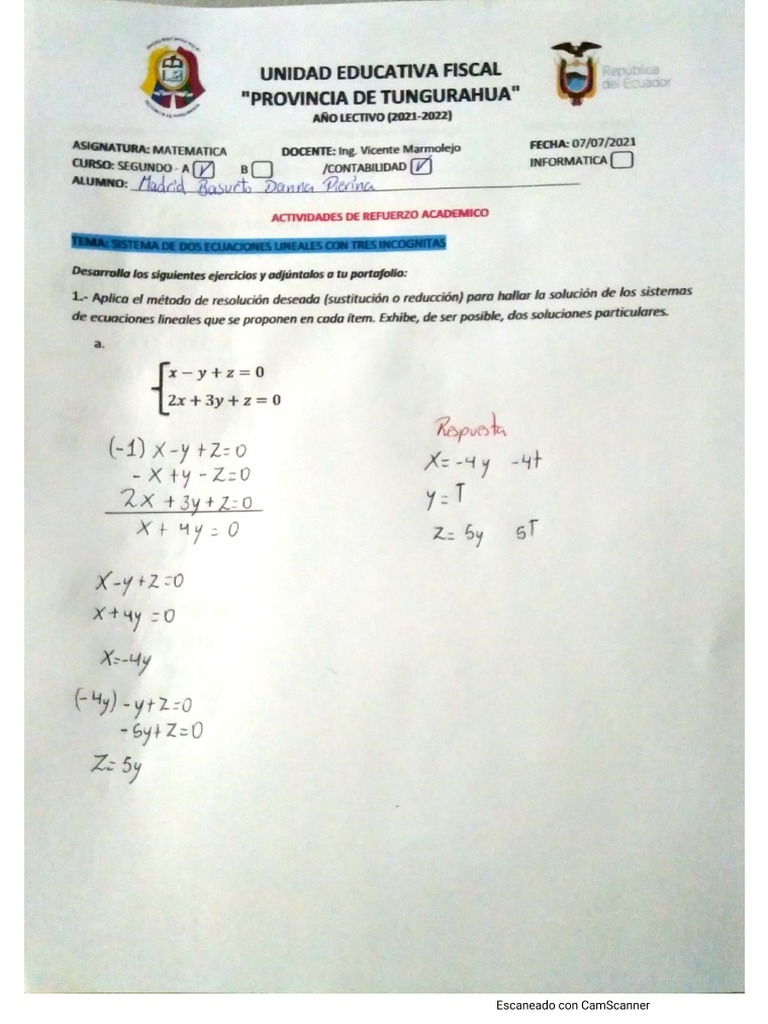 UNIDAD EDUCATIVA FISCAL
"PROVINCIA DE TUNGURAHUA"
AÑO LECTIVO (2021-2022)
República
del Ecuador
ASIGNATURA: MATEMATICA DOCENTE: Ing. Vicente Marmolejo FECHA: 07/07/2021
CURSO: SEGUNDO - A B /CONTABILIDAD INFORMATICA
ALUMNO: Madrid Basurto Danna Pierina
ACTIVIDADES DE REFUERZO ACADEMICO
TEMA: SISTEMA DE DOS ECUACIONES LINEALES CON TRES INCOGNITAS
Desarrolla los siguientes ejercicios y adjúntalos a tu portafolio:
1.- Aplica el método de resolución deseada (sustitución o reducción) para hallar la solución de los sistemas
de ecuaciones lineales que se proponen en cada ítem. Exhibe, de ser posible, dos soluciones particulares.
a.
x − y + z = 0
2x + 3y + z = 0
(-1) x-y+z=0
-x+y-z=0
2x+3y+z=0
x+4y=0
x-y+z=0
x+4y=0
x=-4y
(-4y)-y+z=0
-5y+z=0
z=5y
Respuesta
x=-4y -4t
y=T
z=5y 5T
Escaneado con CamScanner